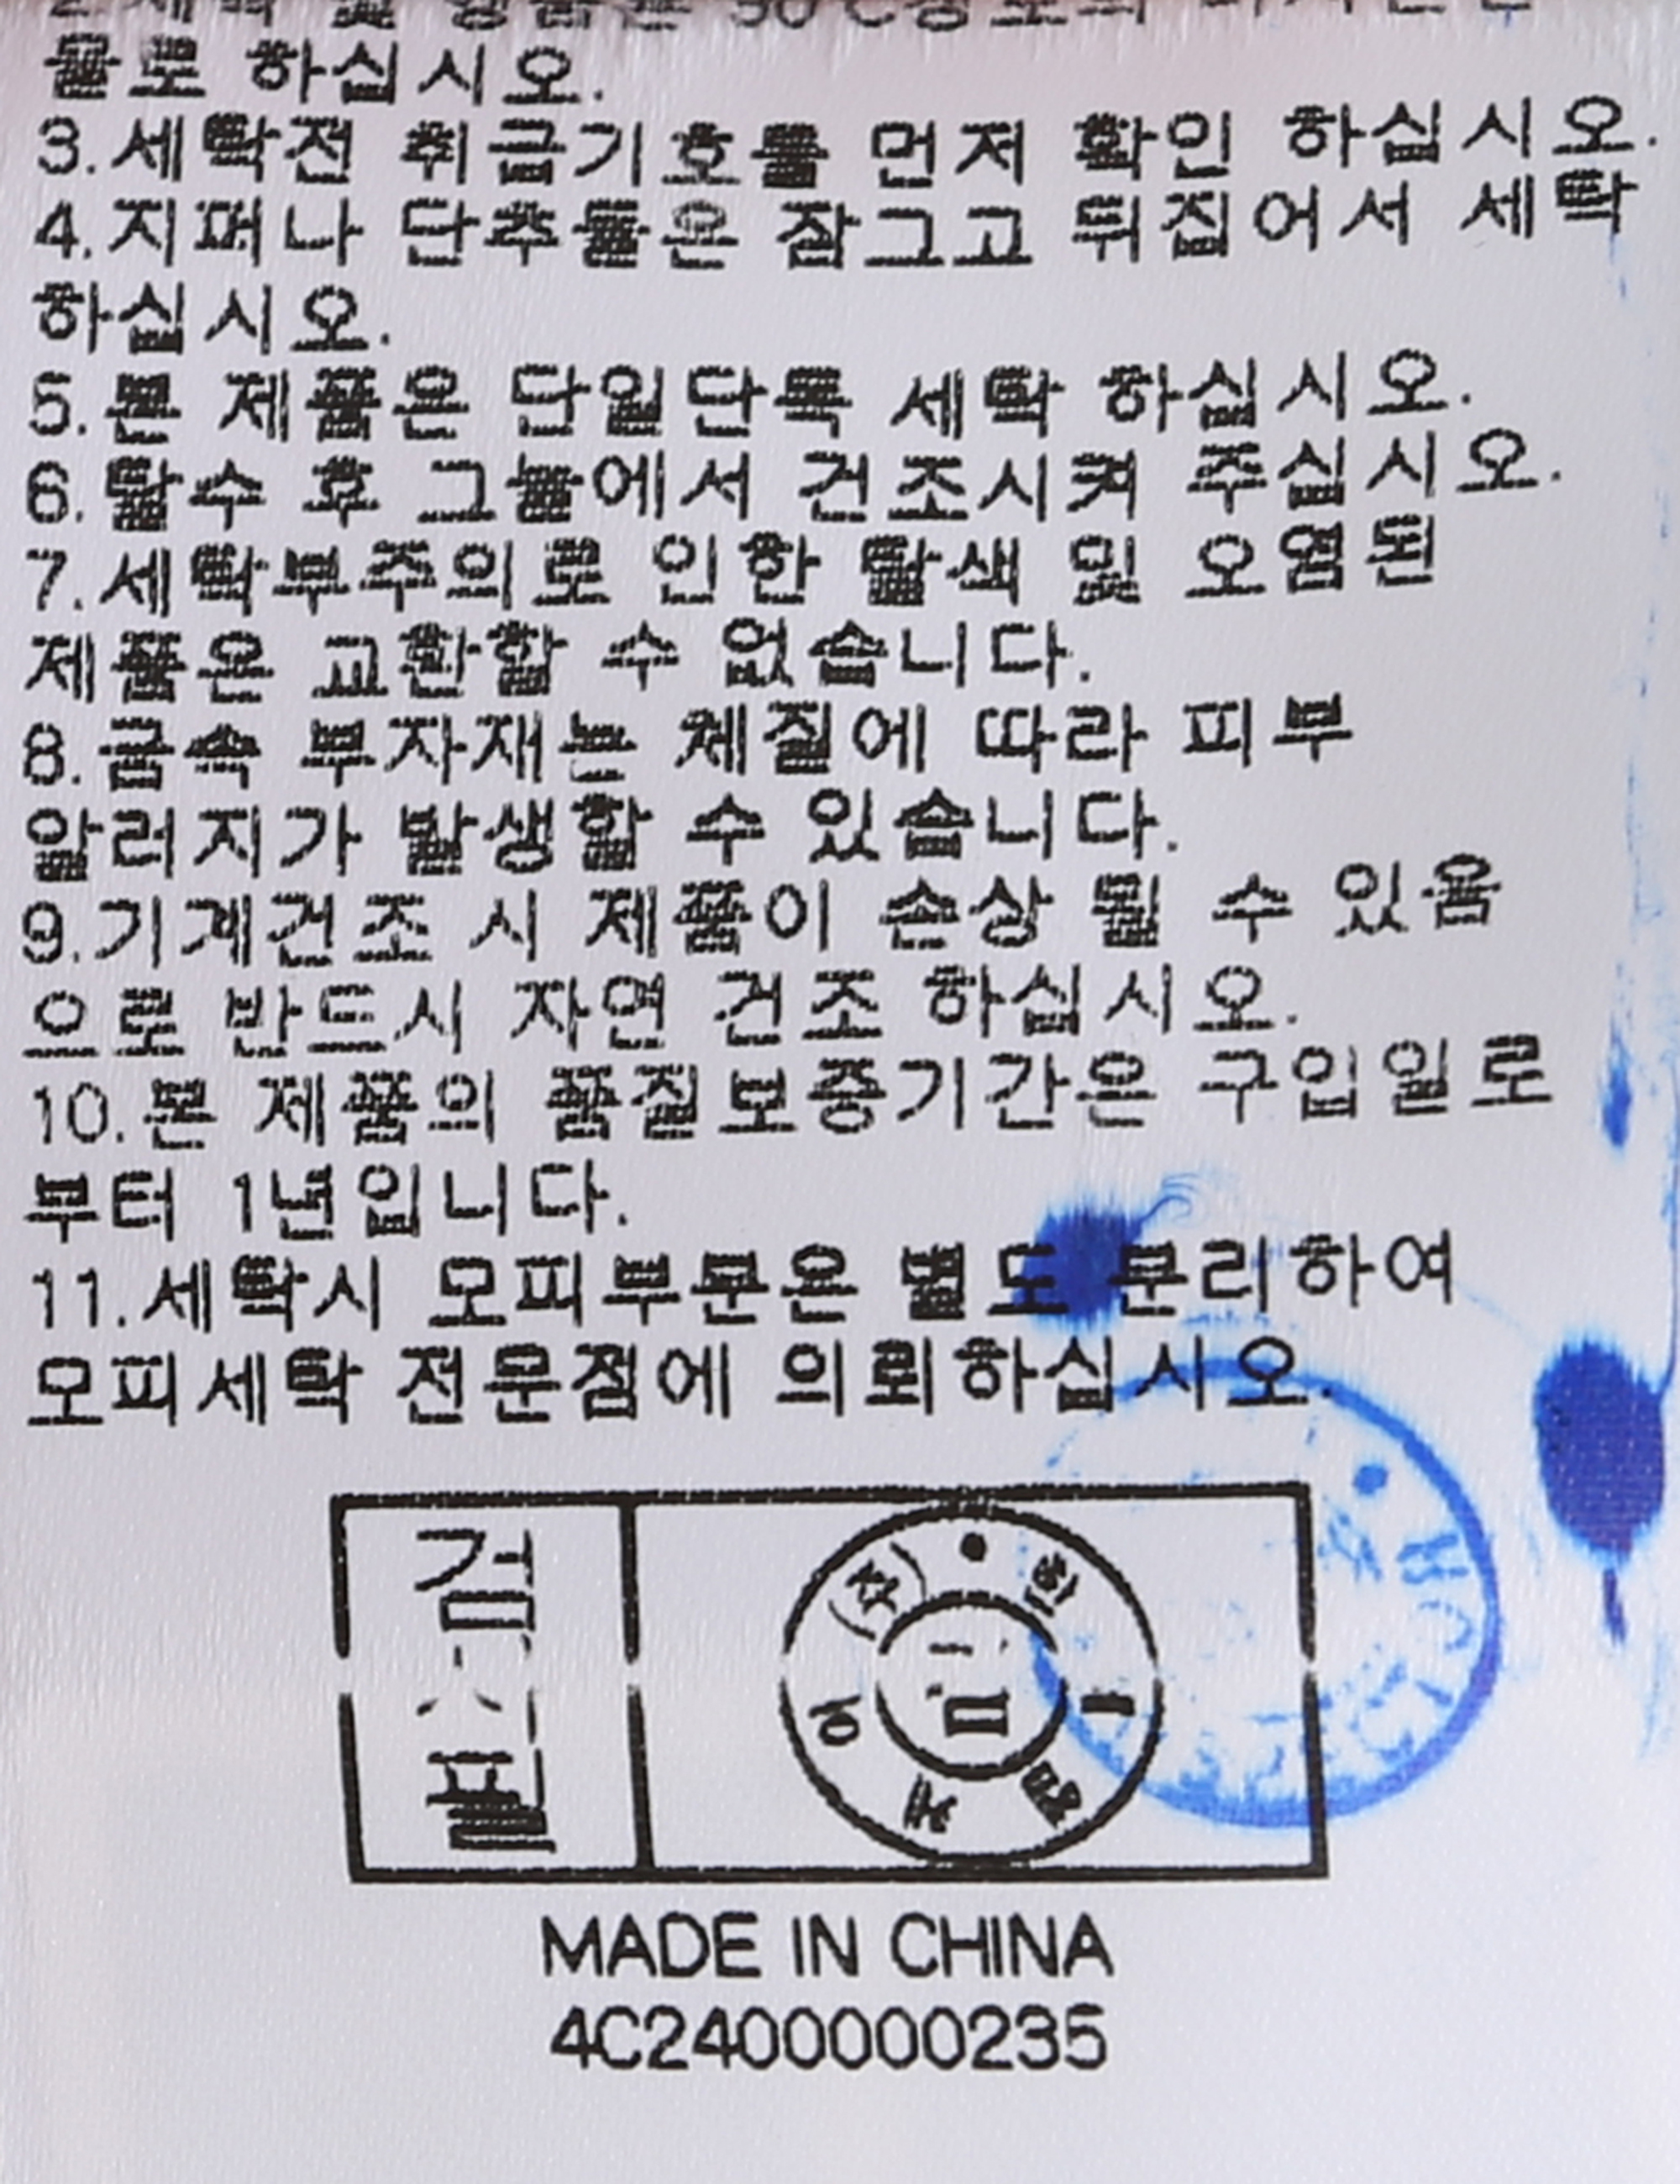 물로 하십시오.
3.세탁전 취급기호를 먼저 확인 하십시오.
4.지퍼나 단추들은 잠그고 뒤집어서 세탁
하십시오.
5.본 제품은 단일단독 세탁 하십시오.
6.탈수 후 그늘에서 건조시켜 주십시오.
7.세탁부주의로 인한 탈색 및 오염된
제품은 교환할 수 없습니다.
8.금속 부자재는 체질에 따라 피부
알러지가 발생할 수 있습니다.
9.기계건조 시 제품이 손상 될 수 있음
으로 반드시 자연 건조 하십시오.
10.본 제품의 품질보증기간은 구입일로
부터 1년입니다.
11.세탁시 모피부분은 별도 분리하여
모피세탁 전문점에 의뢰하십시오.
검
사
필
MADE IN CHINA
4C2400000235